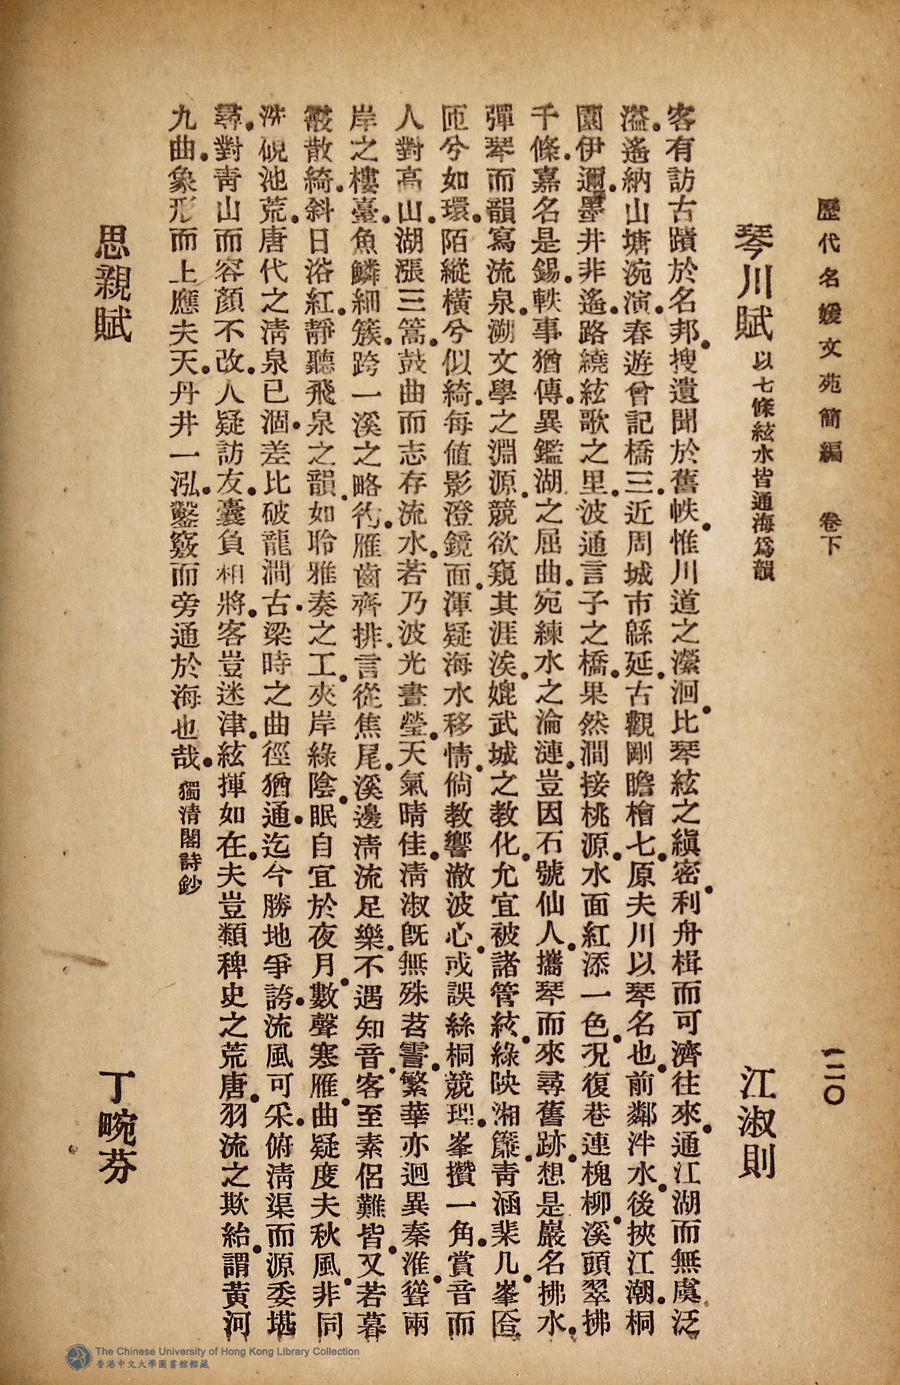 歷代名媛文苑簡編　卷下　一二〇
琴川賦　以七條絃水皆通海爲韻　江淑則
客有訪古蹟於名邦。搜遺聞於舊帙。惟川道之瀠洄。比琴絃之縝密。利舟楫而可濟往來。通江湖而無虞泛
溢。遙納山塘涴演。春遊曾記橋三。近周城市緜延。古觀剛瞻檜七。原夫川以琴名也。前鄰泮水。後挾江潮。桐
園伊邇。墨井非遙。路繞絃歌之里。波通言子之橋。果然澗接桃源。水面紅添一色。況復巷連槐柳。溪頭翠拂
千條。嘉名是錫。軼事猶傳。異鑑湖之屈曲。宛練水之淪漣。豈因石號仙人。攜琴而來尋舊跡。想是巖名拂水。
彈琴而韻寫流泉。溯文學之淵源。競欲窺其涯涘。媲武城之教化。允宜被諸管絃。綠映湘簾。青涵棐几。峯
匝兮如環。陌縱橫兮似綺。每値影澄鏡面。渾疑海水移情。倘教響澈波心。或誤絲桐競理。峯攢一角。賞音而
人對高山。湖漲三篙。鼓曲而志存流水。若乃波光晝瑩。天氣晴佳。淸淑旣無殊苕霅。繁華亦迥異秦淮。聳兩
岸之樓臺。魚鱗細簇。跨一溪之略彴。雁齒齊排。言從焦尾。溪邊淸流足樂。不遇知音。客至素侶難皆。又若暮
霞散綺。斜日浴紅。靜聽飛泉之韻。如聆雅奏之工。夾岸綠陰。眠自宜於夜月。數聲寒雁。曲疑度夫秋風。非同
洗硯池荒。唐代之淸泉已涸。差比破龍澗古。梁時之曲徑猶通。迄今勝地爭誇。流風可采。俯淸渠而源委堪
尋。對靑山而容顏不改。人疑訪友。囊負相將。客豈迷津。絃揮如在。夫豈類稗史之荒唐。羽流之欺紿。謂黃河
九曲。象形而上應夫天。丹井一泓。鑿竅而旁通於海也哉。獨清閣詩鈔
思親賦　丁畹芬
The Chinese University of Hong Kong Library Collection
香港中文大學圖書館館藏